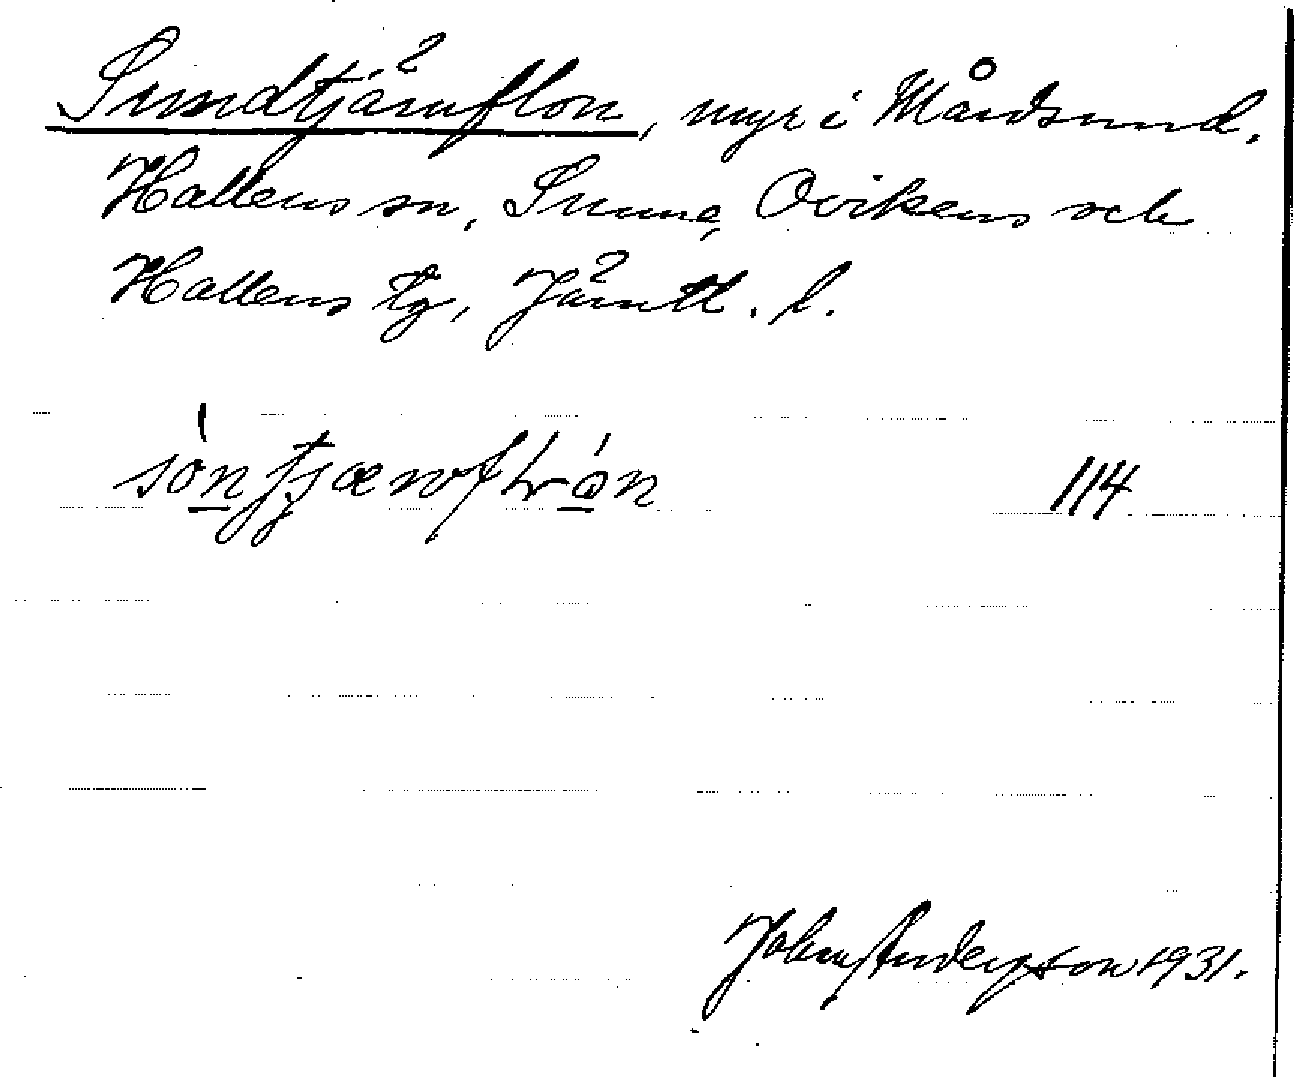 Sundtjärnflon, myr i Mårdsund,
Hallens sn, Sunne, Ovikens och
Hallens tg, Jämtl. l.
114
John Anderson 1931.